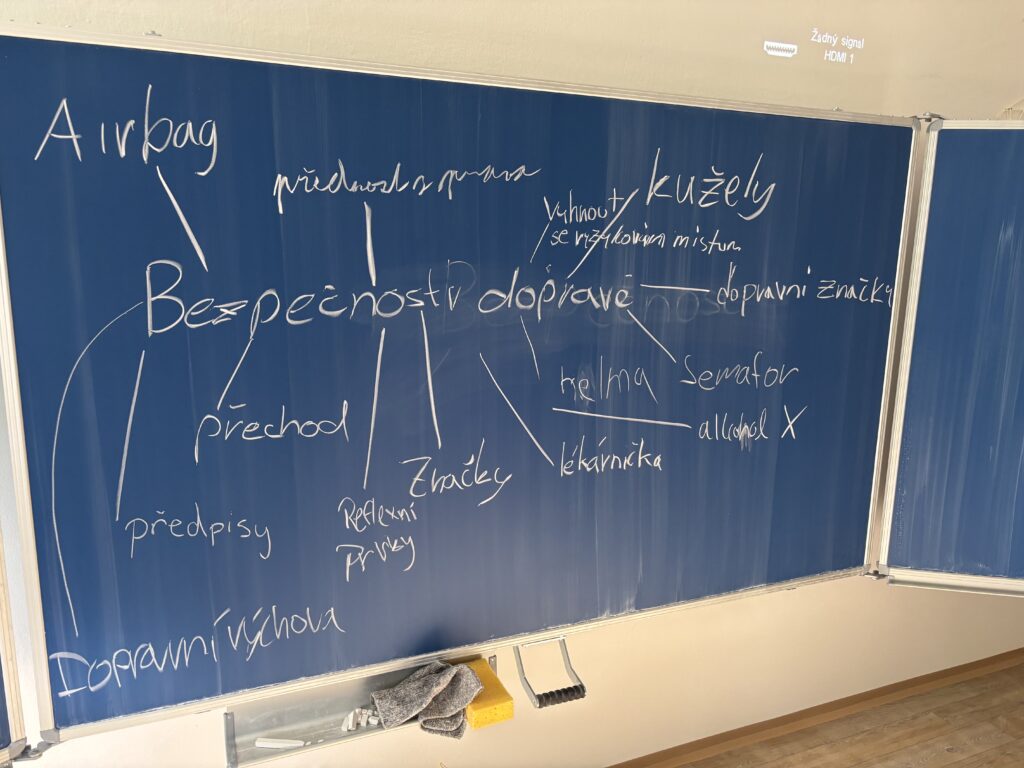 Žádný signál
HDMI 1
Airbag
přednost z prava
kužely
Vyhnout
se ryzykovým místum
Bezpečnost v dopravě
dopravní značky
helma
Semafor
přechod
alkohol X
Značky
lékárnička
předpisy
Reflexní
prvky
Dopravní výchova